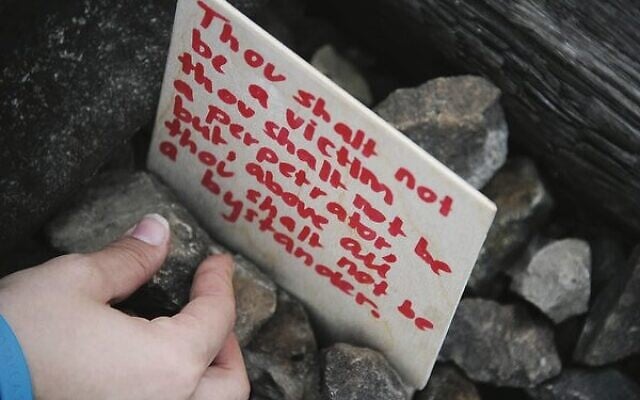 Thou shalt not
be a victim
thou shalt not be
a perpetrator,
but, above all
thou shalt not be
a bystander.